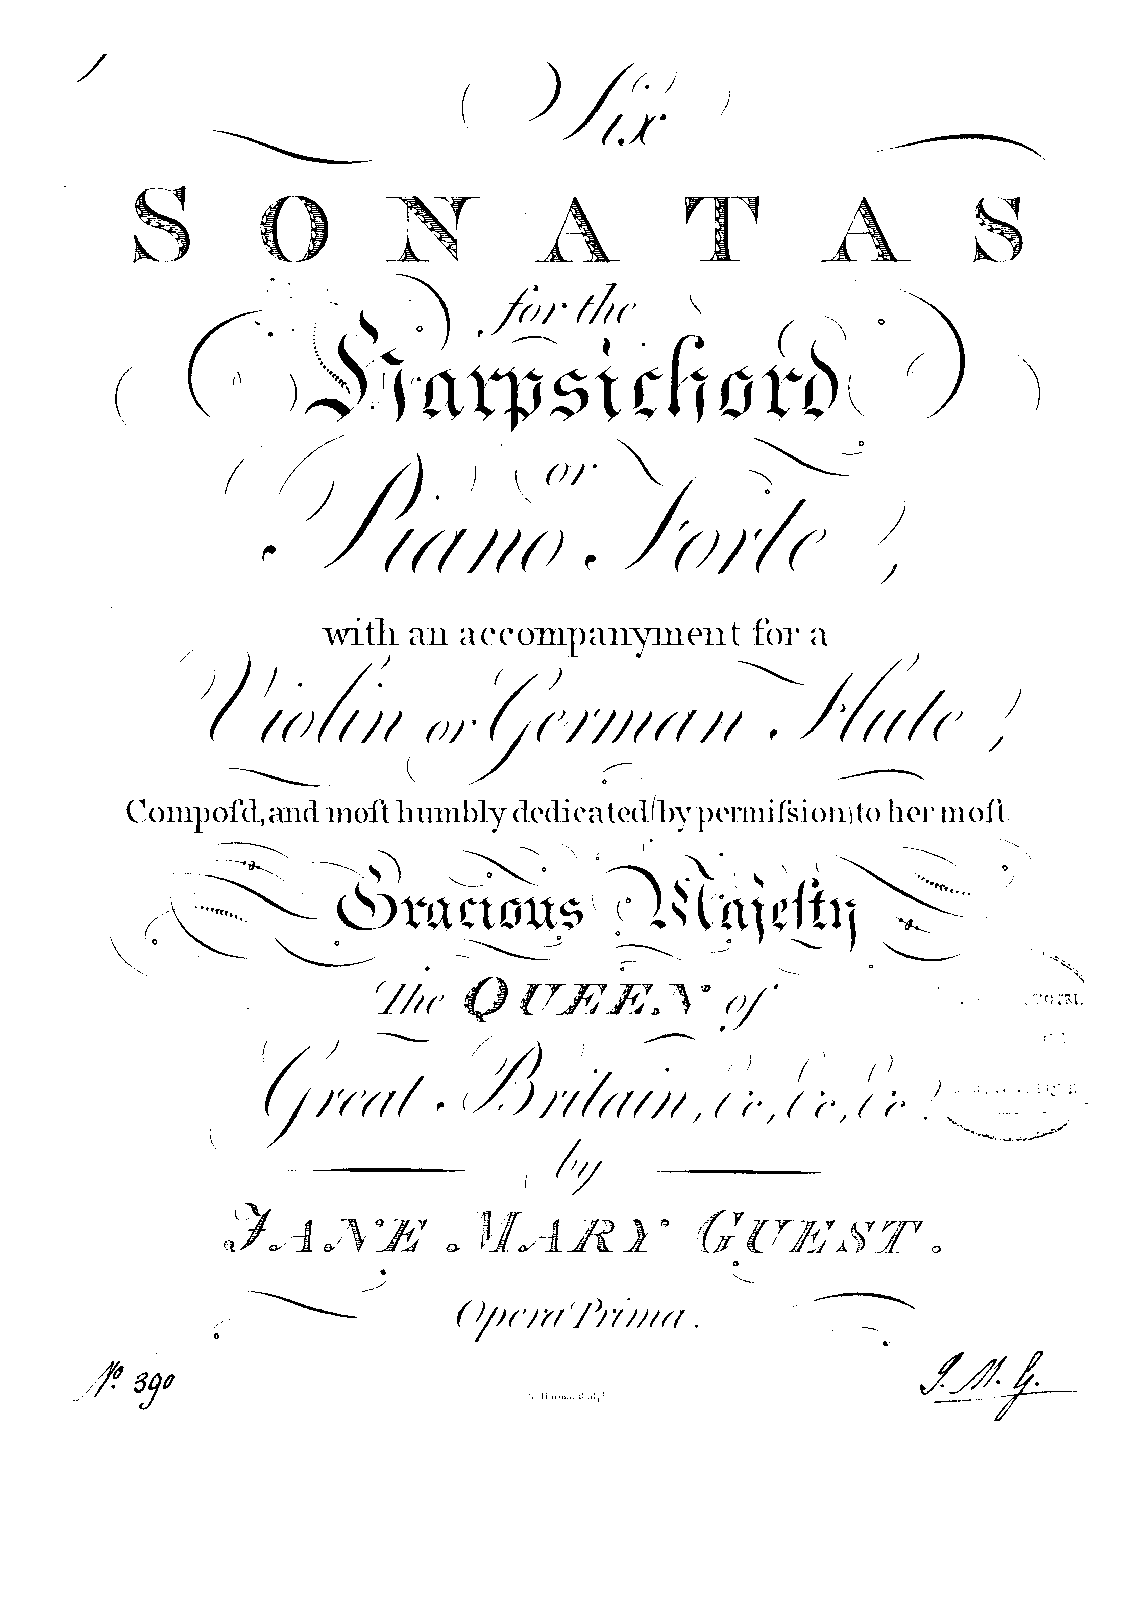 Six
SONATAS
for the
Harpsichord
or
Piano Forte,
with an accompanyment for a
Violin or German Flute,
Compoſd, and moſt humbly dedicated (by permiſsion) to her moſt
Gracious Majeſty
The QUEEN of
Great Britain, &c, &c, &c.
by
JANE MARY GUEST.
Opera Prima.
No. 390
J. M. G.